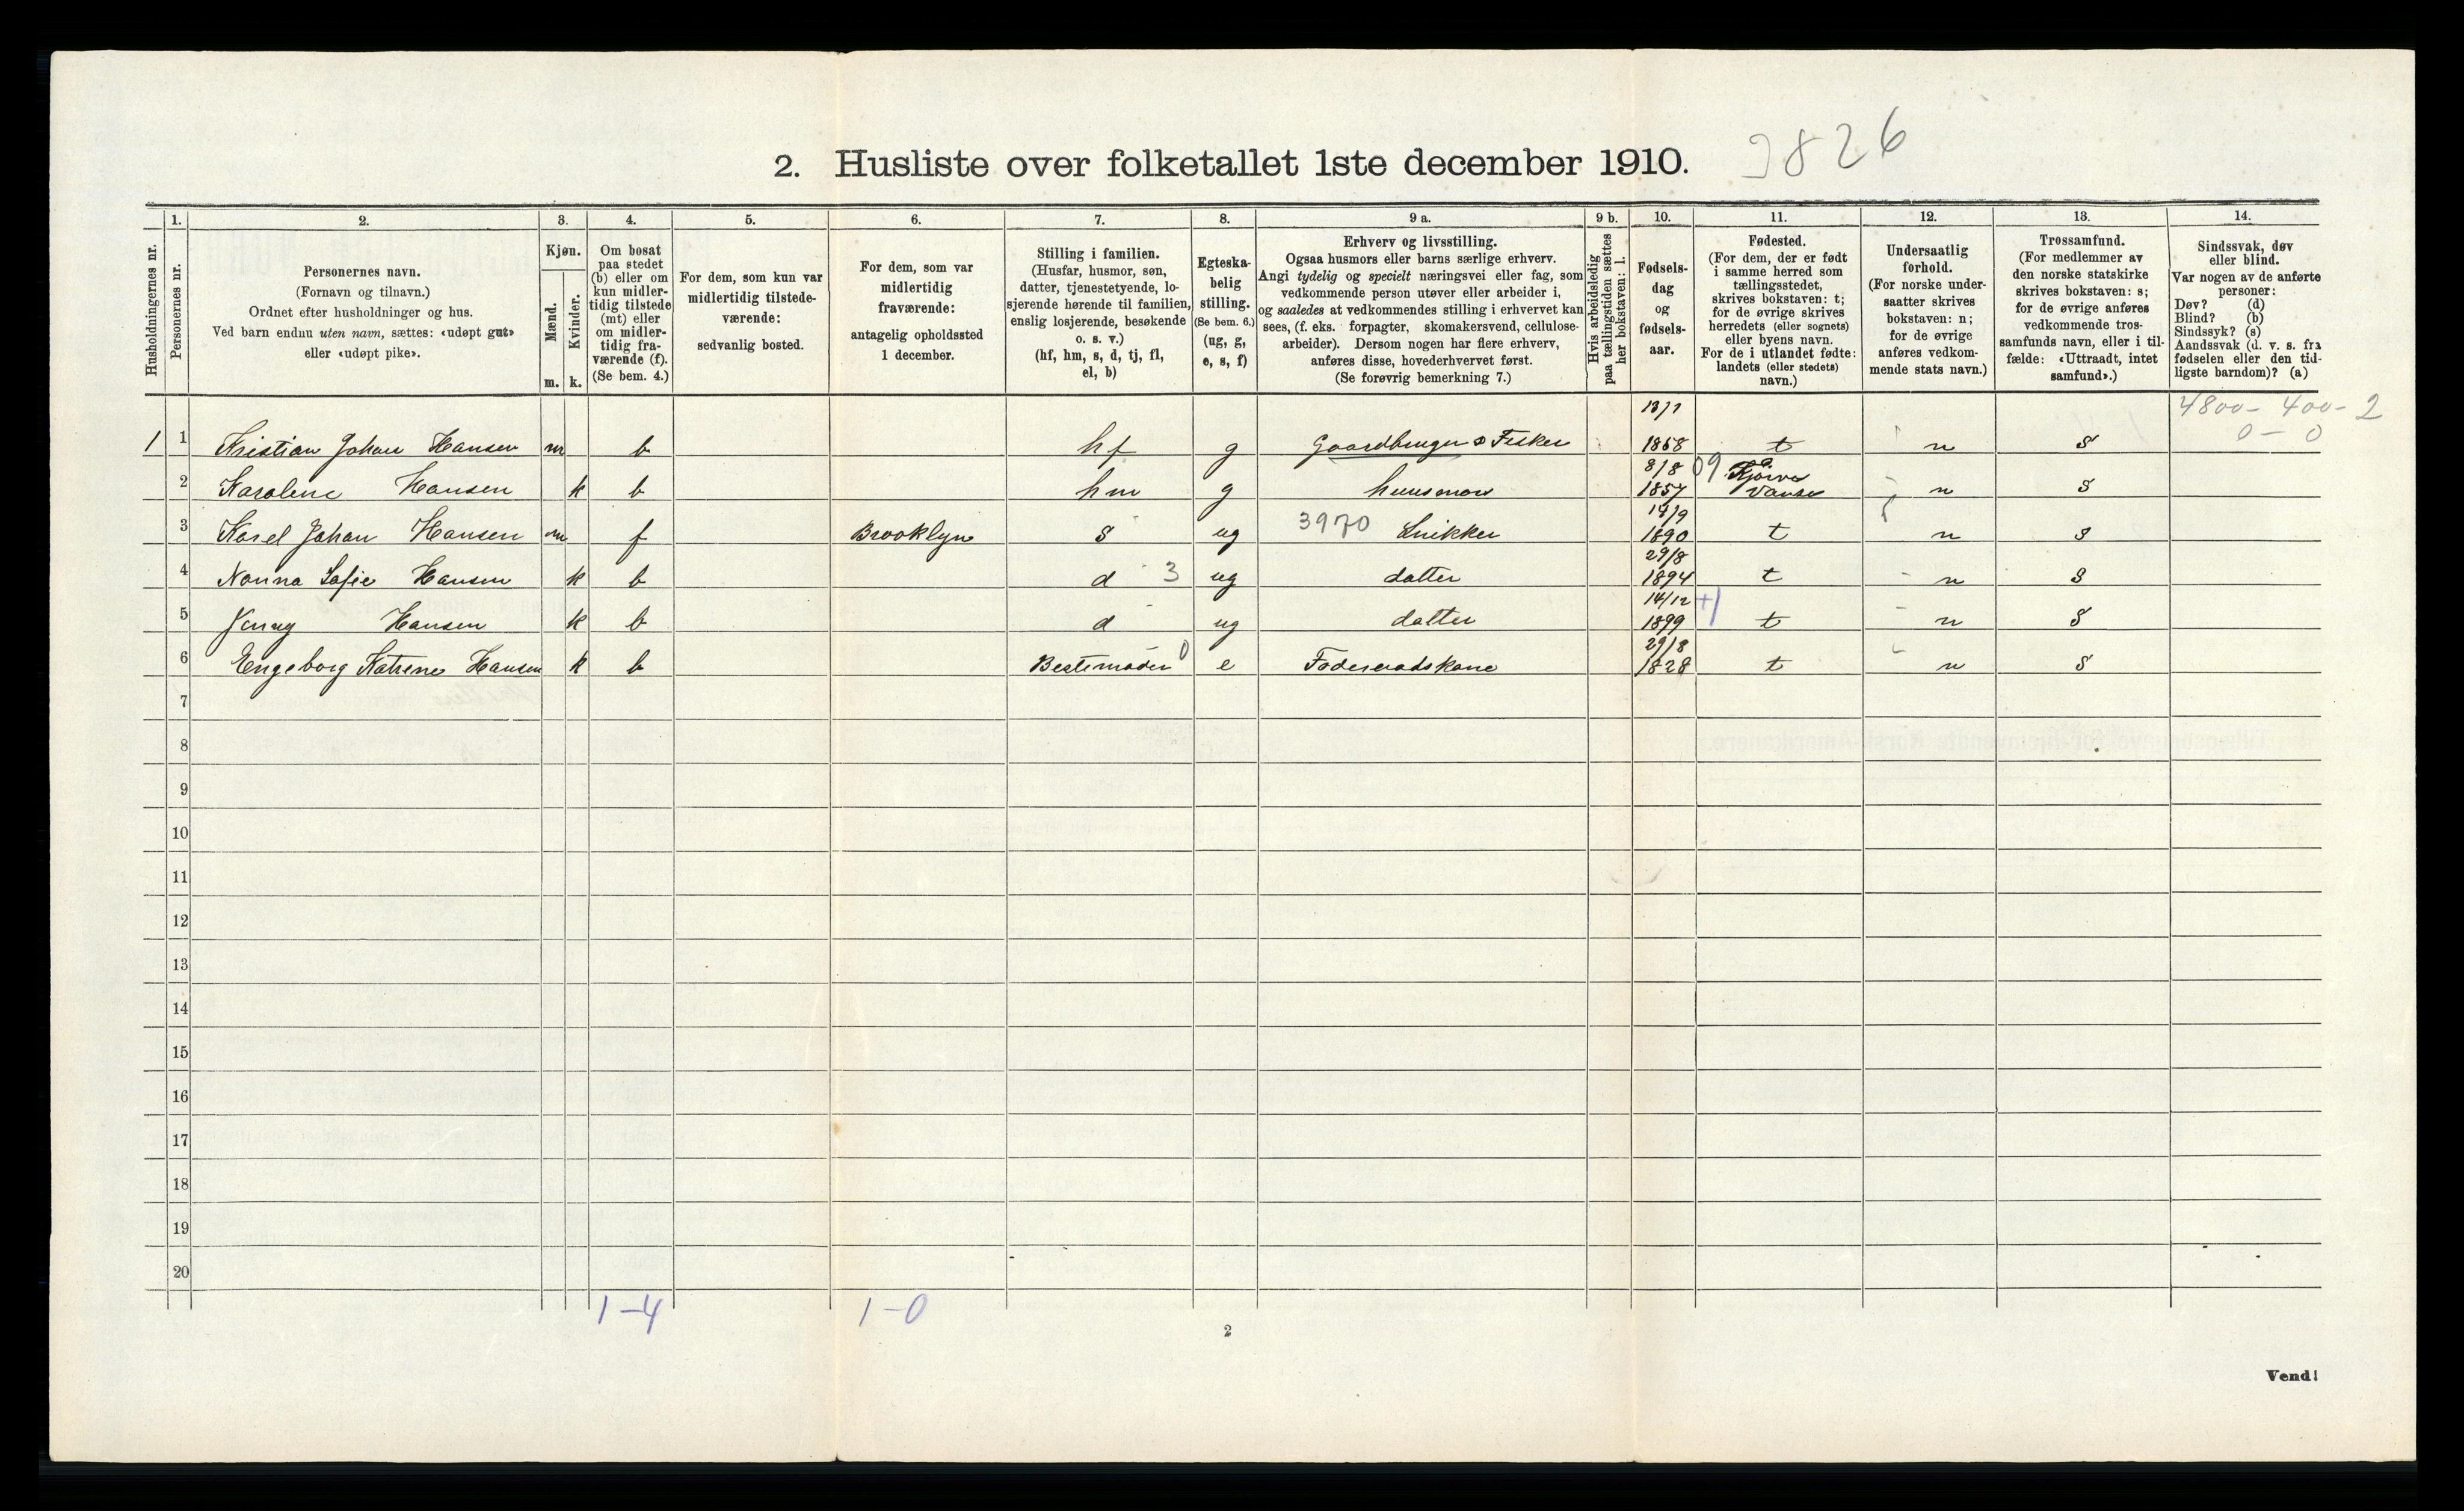 2. Husliste over folketallet 1ste december 1910. 3826
Husholdningernes nr.
1.
Personernes nr.
2.
Personernes navn.
(Fornavn og tilnavn.)
Ordnet efter husholdninger og hus.
Ved barn endnu uten navn, sættes: «udøpt gut»
eller «udøpt pike».
3.
Kjøn.
Mænd.
Kvinder.
m. k.
4.
Om bosat
paa stedet
(b) eller om
kun midler-
tidig tilstede
(mt) eller
om midler-
tidig fra-
værende (f).
(Se bem. 4.)
5.
For dem, som kun var
midlertidig tilstede-
værende:
sedvanlig bosted.
6.
For dem, som var
midlertidig
fraværende:
antagelig opholdssted
1 december.
7.
Stilling i familien.
(Husfar, husmor, søn,
datter, tjenestetyende, lo-
sjerende hørende til familien,
enslig losjerende, besøkende
o. s. v.)
(hf, hm, s, d, tj, fl,
el, b)
8.
Egteska-
belig
stilling.
(Se bem. 6.)
(ug, g,
e, s, f)
9 a.
Erhverv og livsstilling.
Ogsaa husmors eller barns særlige erhverv.
Angi tydelig og specielt næringsvei eller fag, som
vedkommende person utøver eller arbeider i,
og saaledes at vedkommendes stilling i erhvervet kan
sees, (f. eks. forpagter, skomakersvend, cellulose-
arbeider). Dersom nogen har flere erhverv,
anføres disse, hovederhvervet først.
(Se forøvrig bemerkning 7.)
9 b.
Hvis arbeidsledig
paa tællingstiden sættes
her bokstaven: l.
10.
Fødsels-
dag
og
fødsels-
aar.
11.
Fødested.
(For dem, der er født
i samme herred som
tællingsstedet,
skrives bokstaven: t;
for de øvrige skrives
herredets (eller sognets)
eller byens navn.
For de i utlandet fødte:
landets (eller stedets)
navn.)
12.
Undersaatlig
forhold.
(For norske under-
saatter skrives
bokstaven: n;
for de øvrige
anføres vedkom-
mende stats navn.)
13.
Trossamfund.
(For medlemmer av
den norske statskirke
skrives bokstaven: s;
for de øvrige anføres
vedkommende tros-
samfunds navn, eller i til-
fælde: «Uttraadt, intet
samfund».)
14.
Sindssvak, døv
eller blind.
Var nogen av de anførte
personer:
Døv? (d)
Blind? (b)
Sindssyk? (s)
Aandssvak (d. v. s. fra
fødselen eller den tid-
ligste barndom)? (a)
4800 - 400 - 2
0 - 0
1 1 Kristian Johan Hansen m b hf g Gaardbruger & Fisker 13/7 1868 t n s
2 Karolene Hansen k b hm g huusmor 8/8 1857 09 Vanse n s
3 Karel Johan Hansen m f Brooklyn s ug 3970 Snikker 19/9 1890 t n s
4 Nanna Sofie Hansen k b d 3 ug datter 29/8 1894 t n s
5 Jenny Hansen k b d ug datter 14/12 1899 +1 t n s
6 Engeborg Katrene Hansen k b Bestemoder 0 e Føderaadskone 29/8 1828 t n s
7
8
9
10
11
12
13
14
15
16
17
18
19
20
1 - 4 1 - 0
2
Vend!